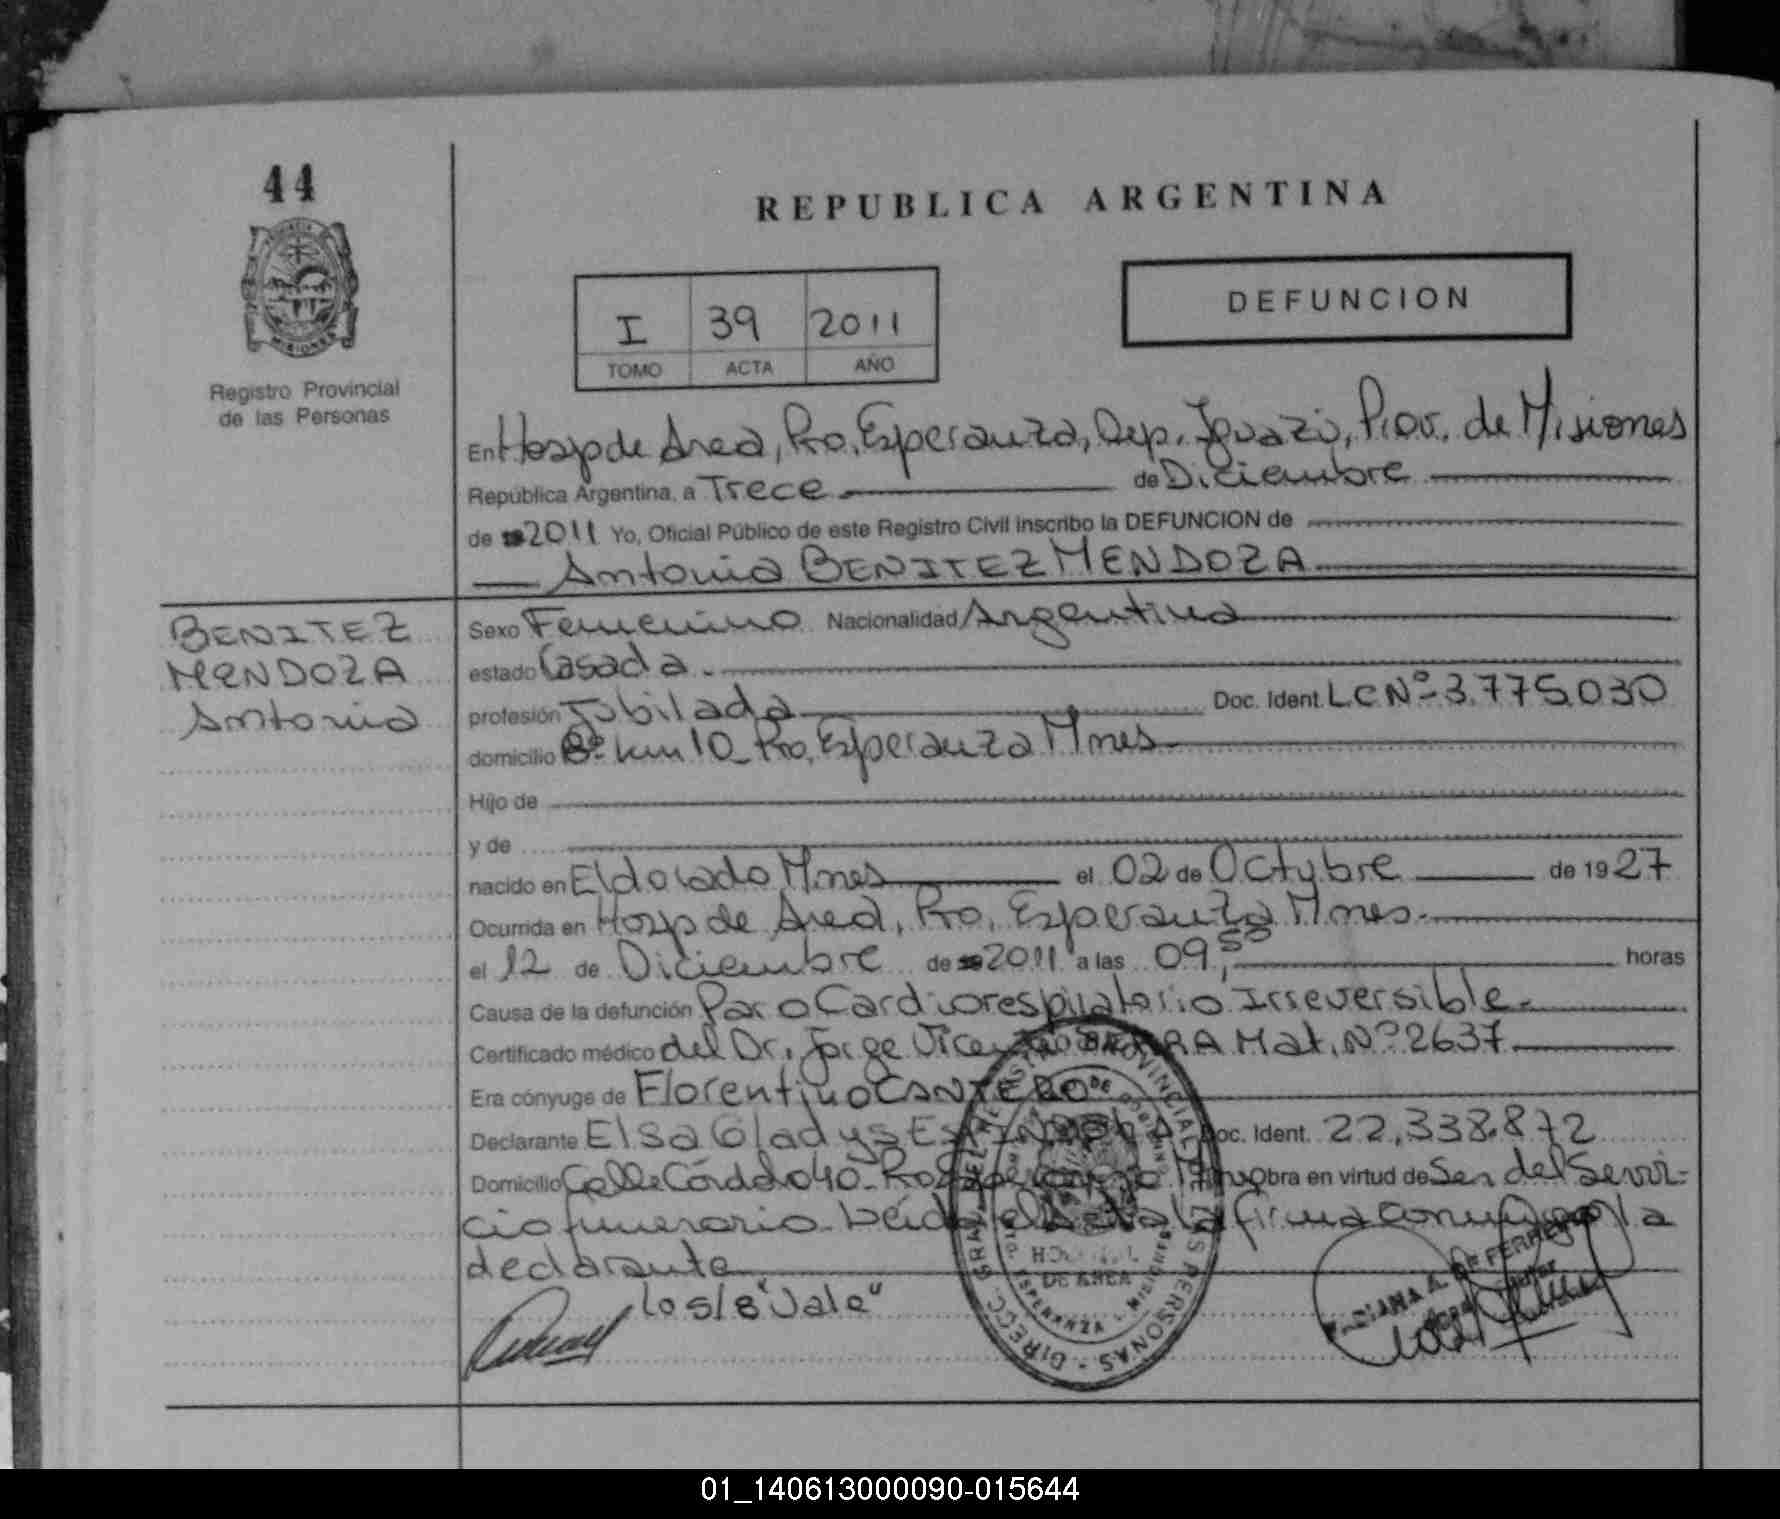 44
REPUBLICA ARGENTINA
MISIONES
Registro Provincial
de las Personas
I 39 2011
TOMO ACTA AÑO
DEFUNCION
En Hosp de Area, Pto. Esperanza, Dep. Iguazú, Prov. de Misiones
República Argentina, a Trece de Diciembre
de 2011 Yo, Oficial Público de este Registro Civil inscribo la DEFUNCION de
Antonia BENITEZ MENDOZA
BENITEZ
MENDOZA
Antonia
Sexo Femenino Nacionalidad Argentina
estado Casada
profesión Jubilada Doc. Ident. LC Nº 3.775.030
domicilio Bº km 10 Pto. Esperanza Mnes
Hijo de
y de
nacido en Eldorado Mnes el 02 de Octubre de 1927
Ocurrida en Hosp de Area, Pto. Esperanza Mnes
el 12 de Diciembre de 2011 a las 09,50 horas
Causa de la defunción Paro Cardiorespiratorio Irreversible
Certificado médico del Dr. Jorge Vicente Mat. Nº 2637
Era cónyuge de Florentino CANTERO
Declarante Elsa Gladys Doc. Ident. 22,338.872
Domicilio Calle 40 Pto Esperanza Obra en virtud de Ser del Servi-
cio funerario. Leída el acta la firma conmigo la
declarante
lo s/b "Vale"
DIRECC. GRAL. DEL REGISTRO PROVINCIAL DE LAS PERSONAS
HOSPITAL
DE AREA
ESPERANZA - MISIONES
DIANA A. DE FERREYRA
01_140613000090-015644